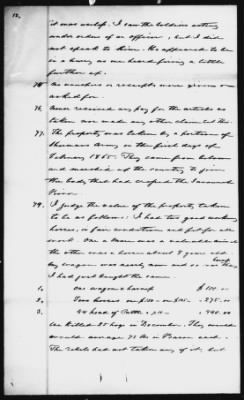 12.
it was unsafe. I saw the soldiers acting
under orders of an officer, but I did
not speak to him. He appeared to be
in a hurry, as we heard firing a little
further up.
75 No vouchers or receipts were given or
asked for.
76. Never received any pay for the articles so
taken nor made any other claim
77. The property was taken by a portion of
Shermans Army in the first days of
February 1865. They came from below
and marched up the country to join
the body that had crossed the Savannah
River.
78. I judge the value of the property taken
to be as follows: I had two good working
horses, in fair condition and fit for all
work. One a mare was a valuable animal
the other was a horse about 8 years old.
My wagon was nearly new and so was the
harness
I had just bought the same.
1. One wagon & harness $100.00
2. Two horses one $150 - one $125 - 275.00
3. 44 head of Cattle
We killed 25 hogs in December. They would
would average 75 lbs in Bacon each.
The rebels had not taken any of it, but